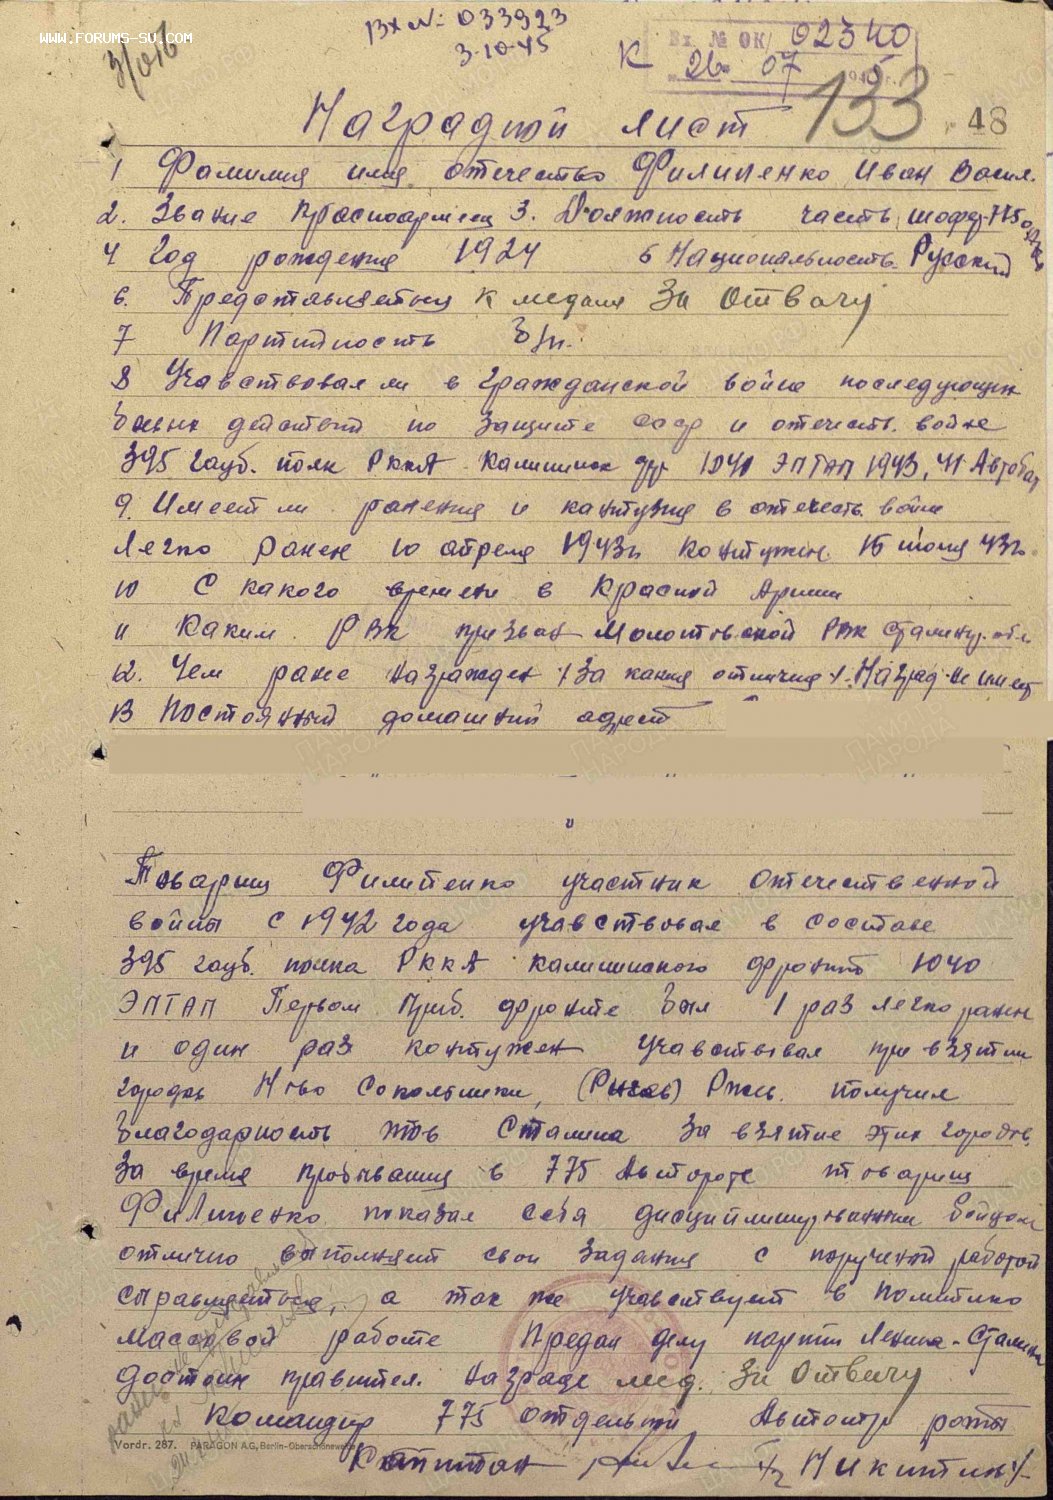 www.forums-su.com
3/016
Вх № 033923
3-10-45
К
Вх № ОК/ 02340
26 07 194 5 г.
133
48
Наградной лист
1 Фамилия имя отечество Филипенко Иван Васил.
2. Звание красноармеец 3. Должность часть шофер 775
4 Год рождения 1924 6 Национальность Русский
6. Представляеться к медали За Отвагу
7 Партийность Б/п.
8 Учавствовал ли в гражданской войне последующих
боевых действий по защите ссср и отечеств. войне
395 гауб. полк РККА Калининск фр 1040 ЭПТАП 1943, 41 Автобат
9. Имеет ли ранения и контузия в отечеств. войне
Легко ранен 10 апреля 1943г Контужен 15 июня 43г.
10 С какого времени в Красной Армии
11 Каким РВК призван Молотовской РВК Сталингр. обл
12. Чем ране награжден /За какия отличия/. Наград не имеет
13 Постоянный домашний адрест
Товарищ Филипенко участник Отечественной
войны с 1942 года учавствовал в составе
395 гауб. полка РККА Калининского фронта 1040
ЭПТАП Первом Приб. фронте Был 1 раз легко ранен
и один раз контужен Учавствовал при взятии
городов Ново Сокольники, (Ржев) Ржев. получил
Благодарность тов Сталина За взятие этих городов.
За время пробывания в 775 Автороте товарищ
Филипенко показал себя дисциплинированным бойцом
отлично выполняет свои задания с порученой работой
справляеться, а так же учавствует в политико
массовой работе Предан делу партии Ленина-Сталина
Достоин правител. награде мед. За Отвагу
Командир 775 отдельной Автотр роты
Капитан /Никитин/
Vordr. 287. PARAGON A.G., Berlin-Oberschöneweide